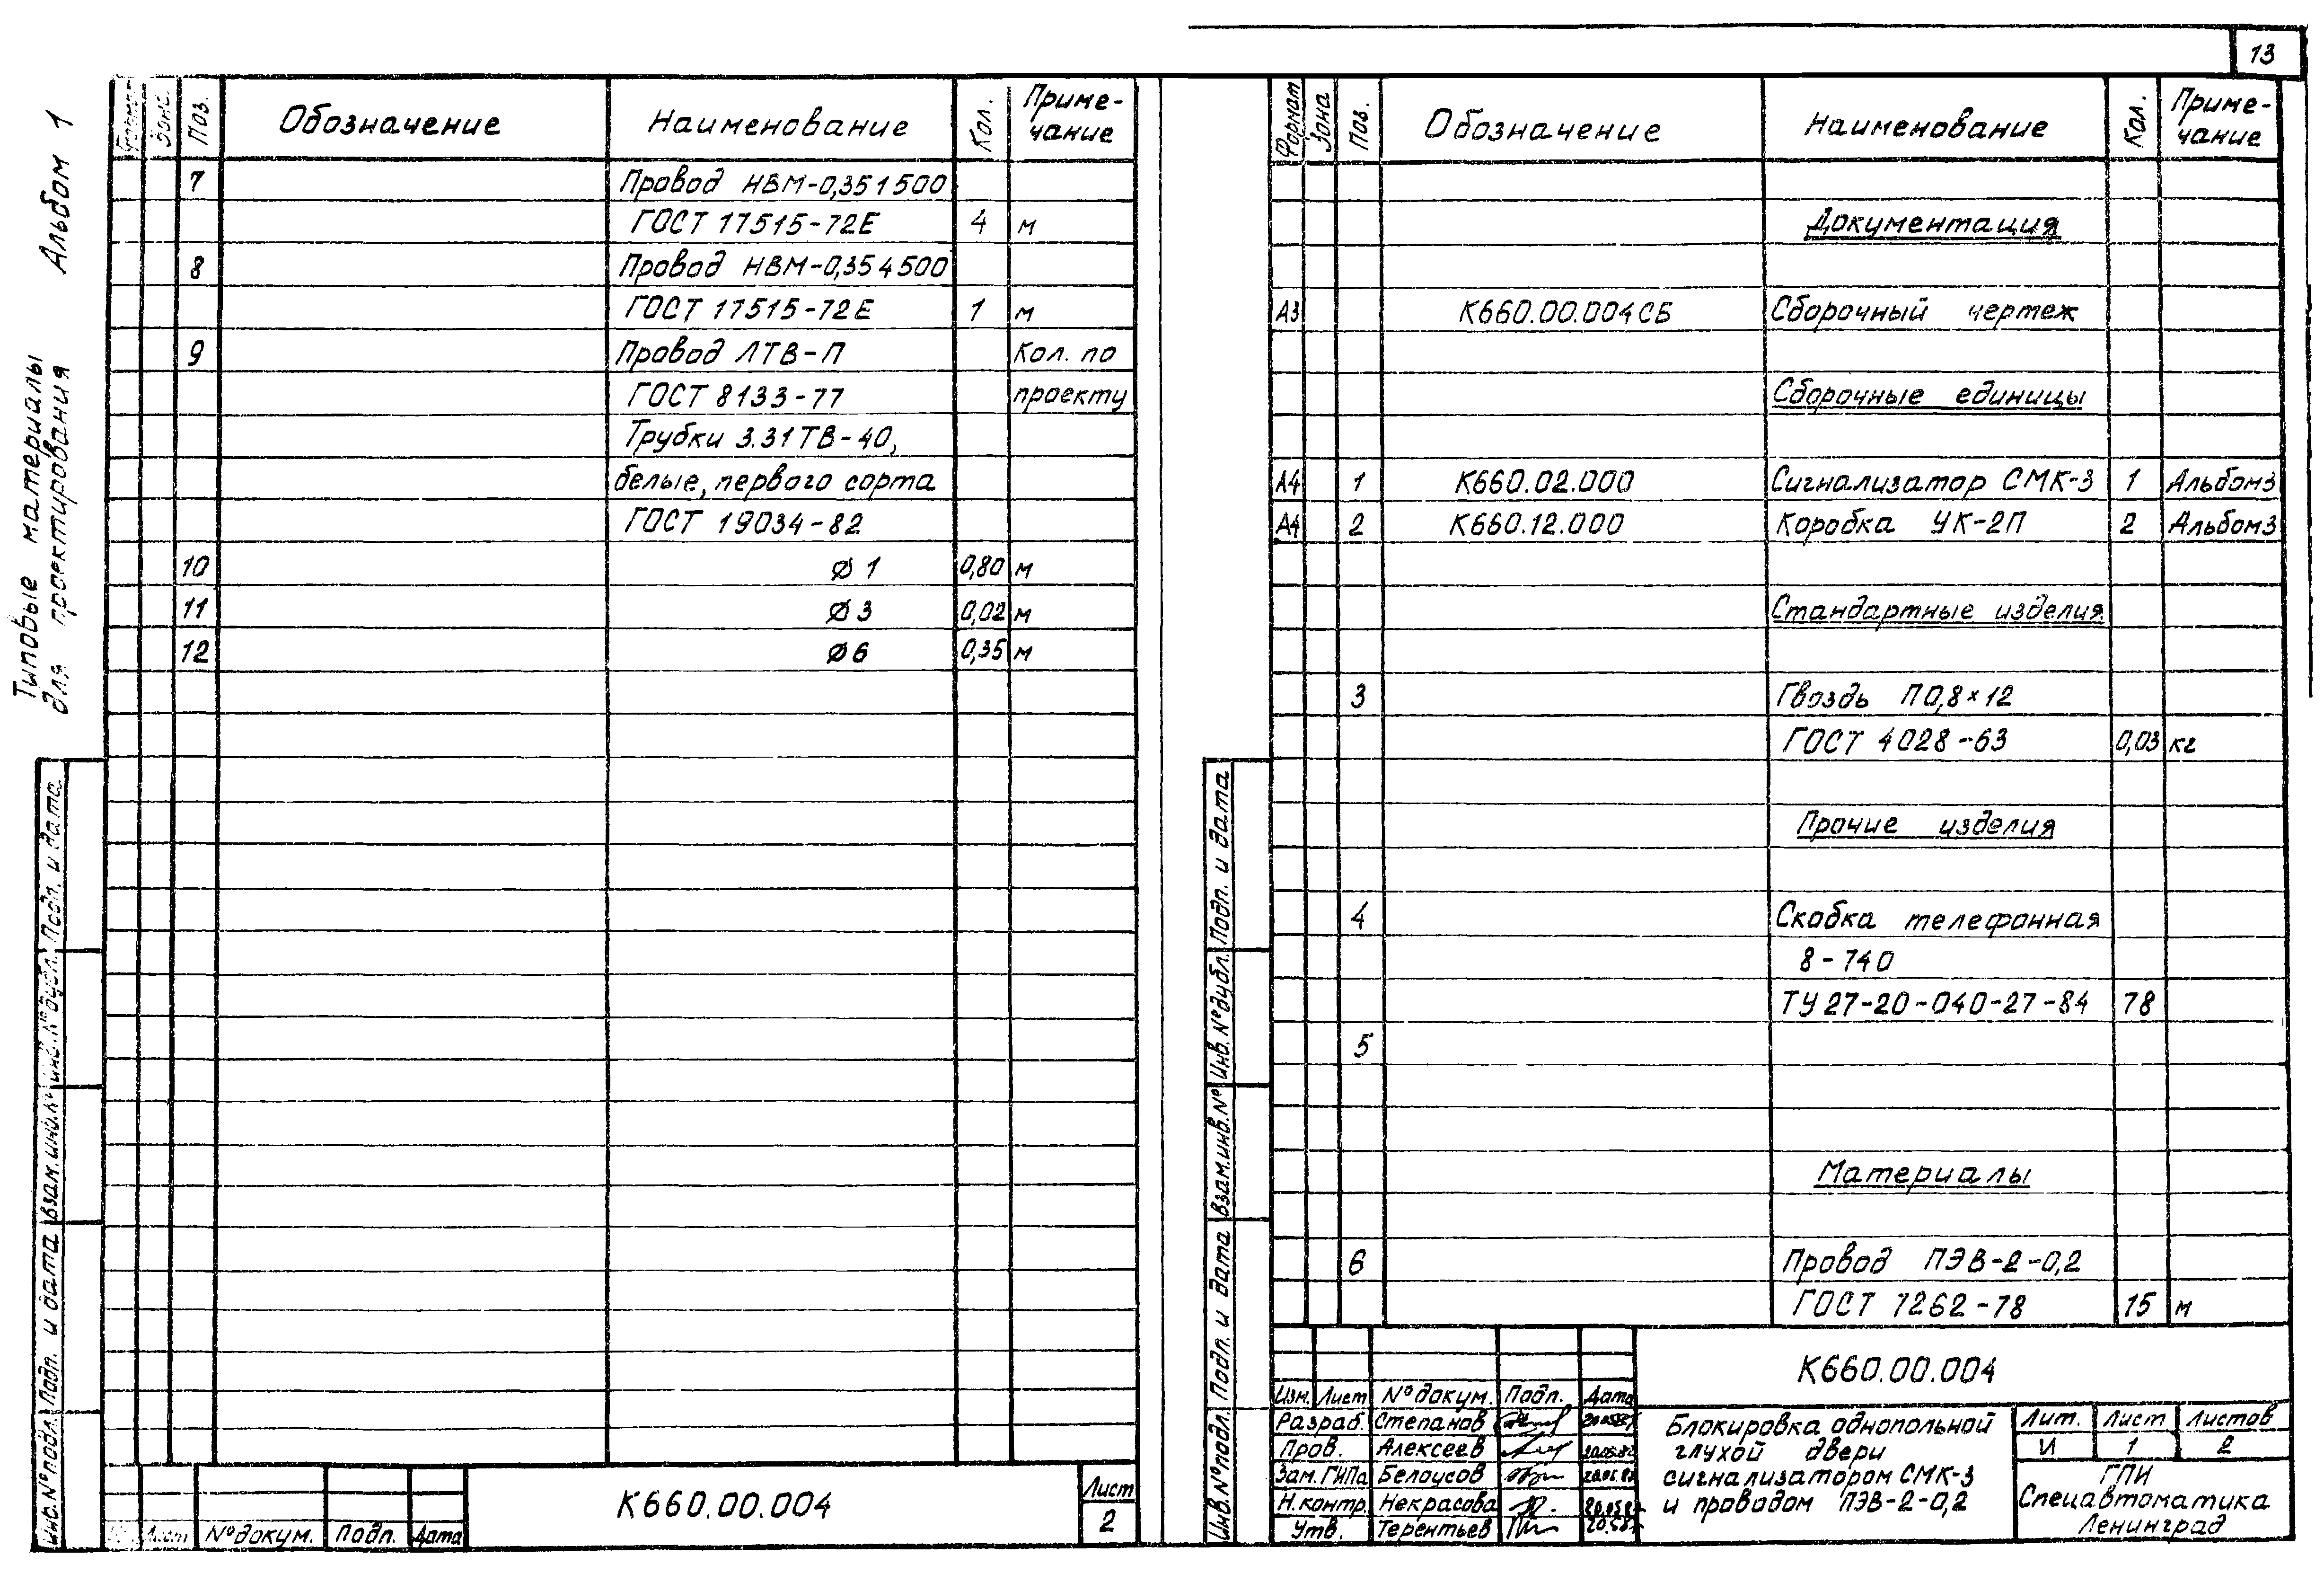 13
Типовые материалы
для проектирования
Альбом 1
Зона
Поз.
Обозначение
Наименование
Кол.
Приме-
чание
7 Провод НВМ-0,35 1 500
ГОСТ 17515-72Е 4 м
8 Провод НВМ-0,35 4 500
ГОСТ 17515-72Е 1 м
9 Провод ЛТВ-П Кол. по
ГОСТ 8133-77 проекту
Трубки 3.31ТВ-40,
белые, первого сорта
ГОСТ 19034-82
10 Ø1 0,80 м
11 Ø3 0,02 м
12 Ø6 0,35 м
Подп. и дата
Инв.№дубл.
Взам.инв.№
Подп. и дата
Инв.№подл.
Лист №докум. Подп. Дата
К660.00.004
Лист
2
Формат
Зона
Поз.
Обозначение
Наименование
Кол.
Приме-
чание
Документация
А3 К660.00.004СБ Сборочный чертеж
Сборочные единицы
А4 1 К660.02.000 Сигнализатор СМК-3 1 Альбом3
А4 2 К660.12.000 Коробка УК-2П 2 Альбом3
Стандартные изделия
3 Гвоздь П 0,8×12
ГОСТ 4028-63 0,03 кг
Прочие изделия
4 Скобка телефонная
8-740
ТУ 27-20-040-27-84 78
5
Материалы
6 Провод ПЭВ-2-0,2
ГОСТ 7262-78 15 м
Подп. и дата
Инв.№дубл.
Взам.инв.№
Подп. и дата
Инв.№подл.
К660.00.004
Изм. Лист №докум. Подп. Дата
Разраб. Степанов
Пров. Алексеев
Зам.ГИПа Белоусов
Н.контр. Некрасова
Утв. Терентьев
Блокировка однопольной
глухой двери
сигнализатором СМК-3
и проводом ПЭВ-2-0,2
Лит. Лист Листов
И 1 2
ГПИ
Спецавтоматика
Ленинград